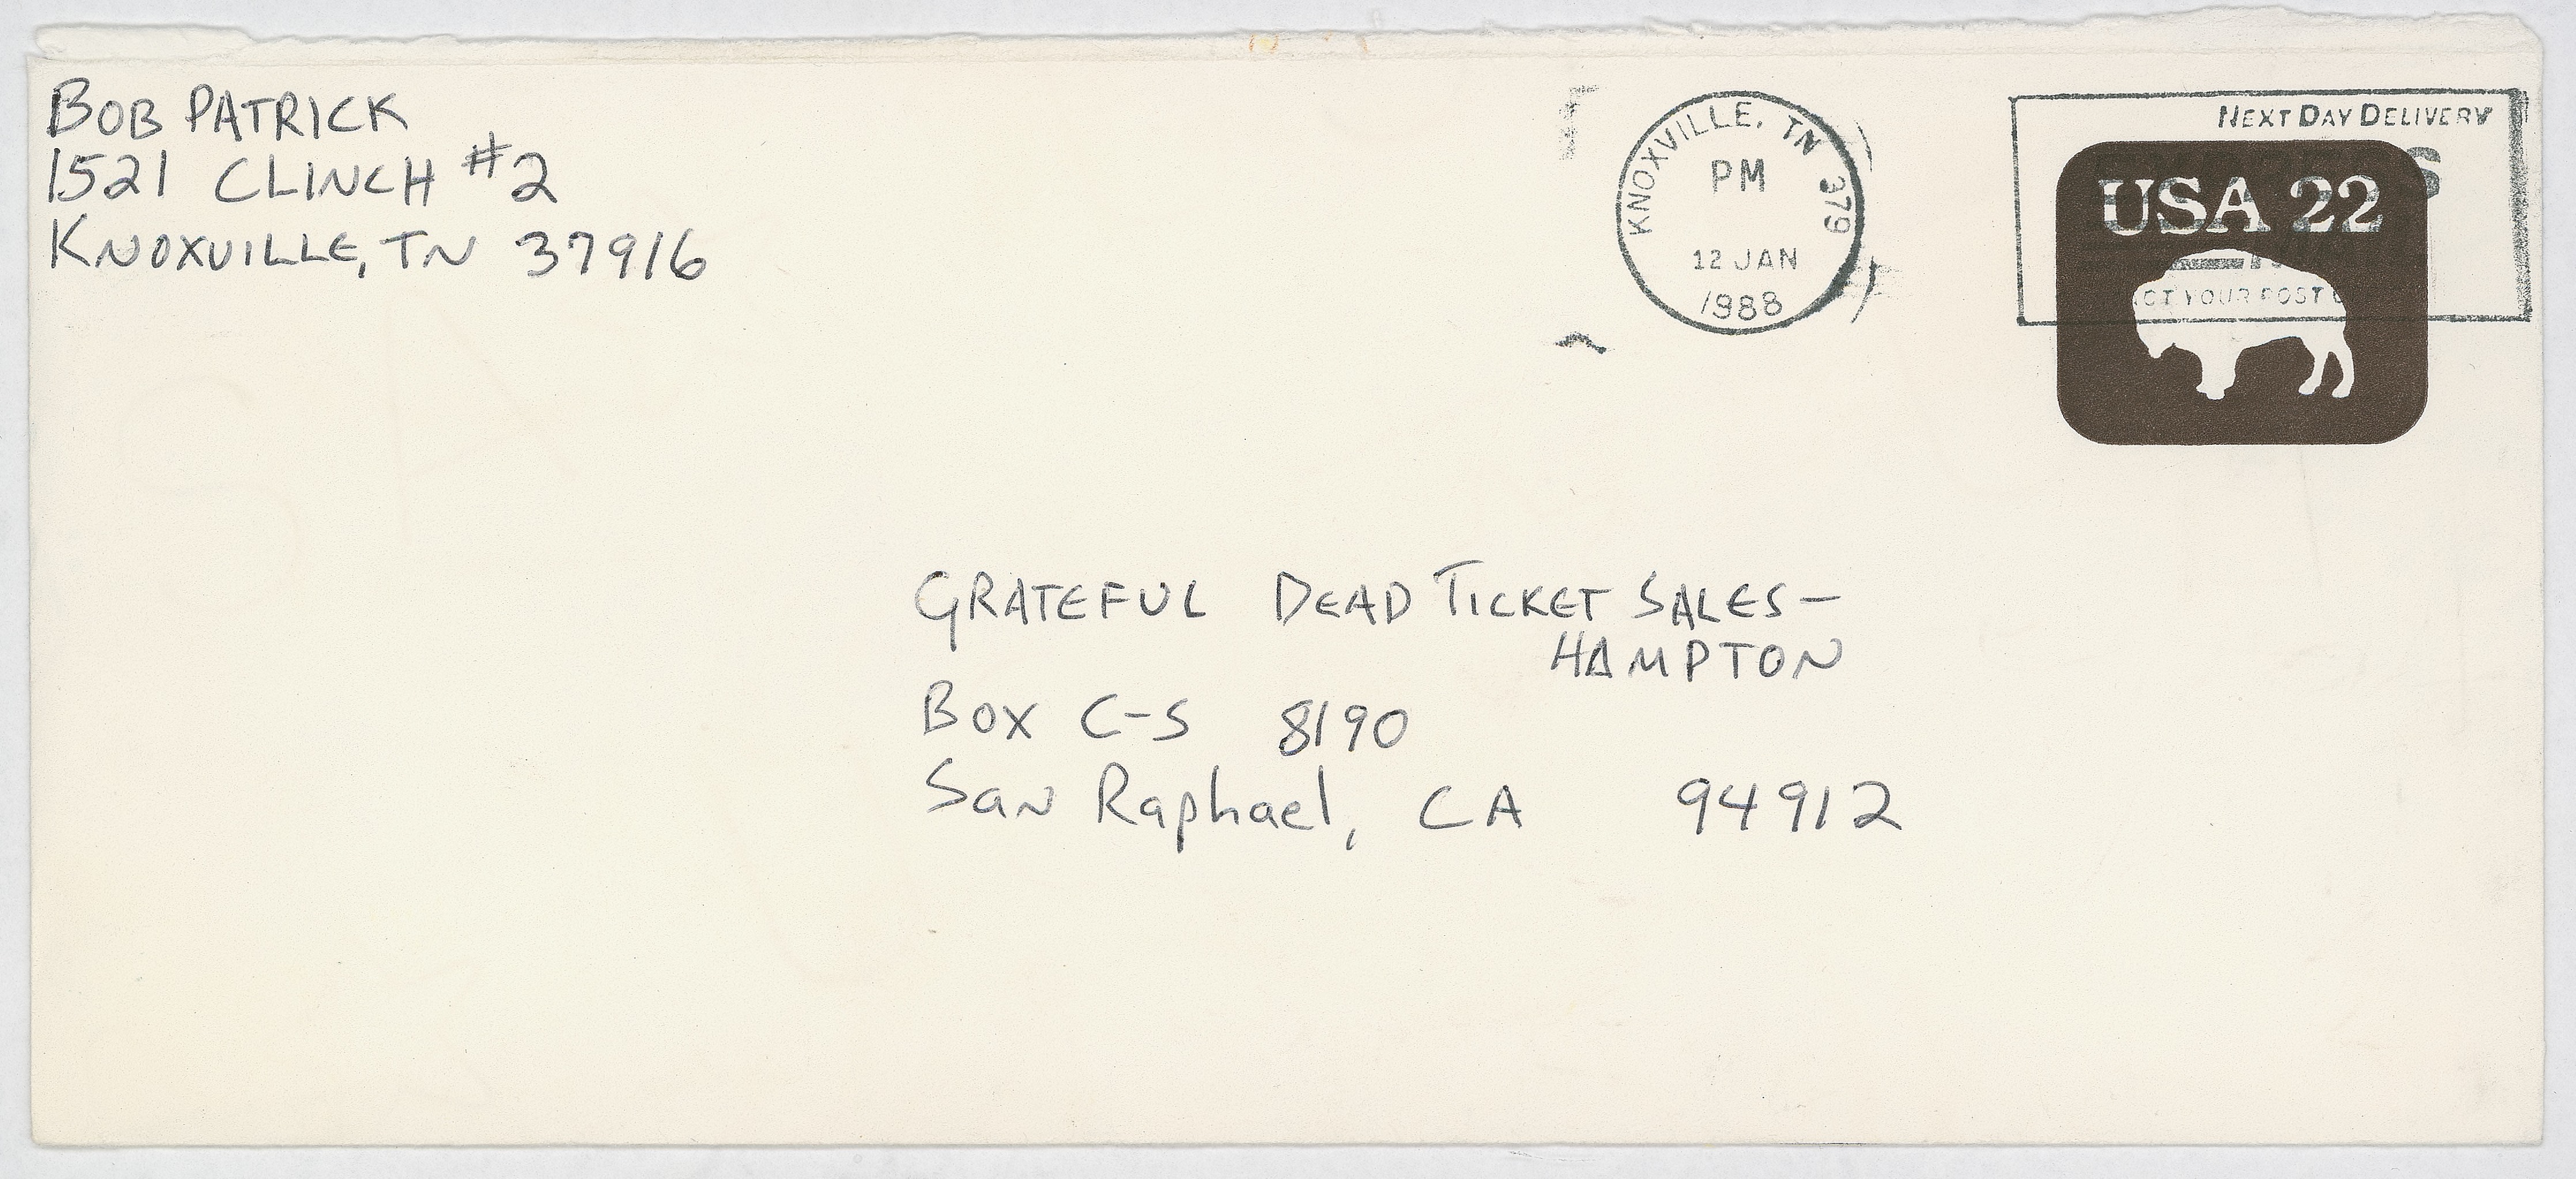 BOB PATRICK
1521 CLINCH #2
KNOXVILLE, TN 37916
KNOXVILLE, TN 379
PM
12 JAN
1988
NEXT DAY DELIVERY
USA 22
YOUR POST
GRATEFUL DEAD TICKET SALES-
HAMPTON
BOX C-S 8190
San Raphael, CA 94912